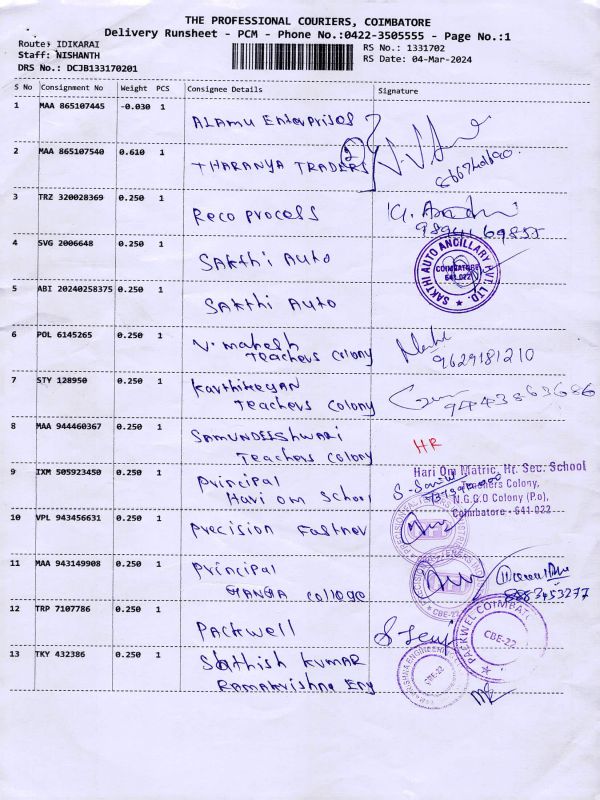 THE PROFESSIONAL COURIERS, COIMBATORE
Delivery Runsheet - PCM - Phone No.:0422-3505555 - Page No.:1
Route: IDIKARAI
RS No.: 1331702
Staff: NISHANTH
RS Date: 04-Mar-2024
DRS No.: DCJB133170201
S No Consignment No Weight PCS Consignee Details Signature
1 MAA 865107445 -0.030 1 ALAMU Enterprises
2 MAA 865107540 0.610 1 THARANYA TRADERS 2
3 TRZ 320028369 0.250 1 Reco process
4 SVG 2006648 0.250 1 SAKthi Auto
SAKTHI AUTO ANCILLARY PVT. LTD.
COIMBATORE
641 022
5 ABI 20240258375 0.250 1 SAKthi Auto
6 POL 6145265 0.250 1 V. mahesh
Teachers colony 9629181210
7 STY 128950 0.250 1 Karthikeyan
Teachers colony 9443863686
8 MAA 944460367 0.250 1 SAMUNDEESHwARi
Teachers colony
HR
9 IXM 505923450 0.250 1 principal
Hari om School
Hari Om Matric. Hr. Sec. School
Teachers Colony,
N.G.G.O Colony (P.o),
Coimbatore - 641 022
10 VPL 943456631 0.250 1 Precision Fastnev
11 MAA 943149908 0.250 1 principal
GANGA college
8883453277
CBE-22
12 TRP 7107786 0.250 1 PACKwell
PACKWEL COIMBATORE
CBE-22
13 TKY 432386 0.250 1 Sathish KUMAR
Ramakrishna Eng
CBE-22